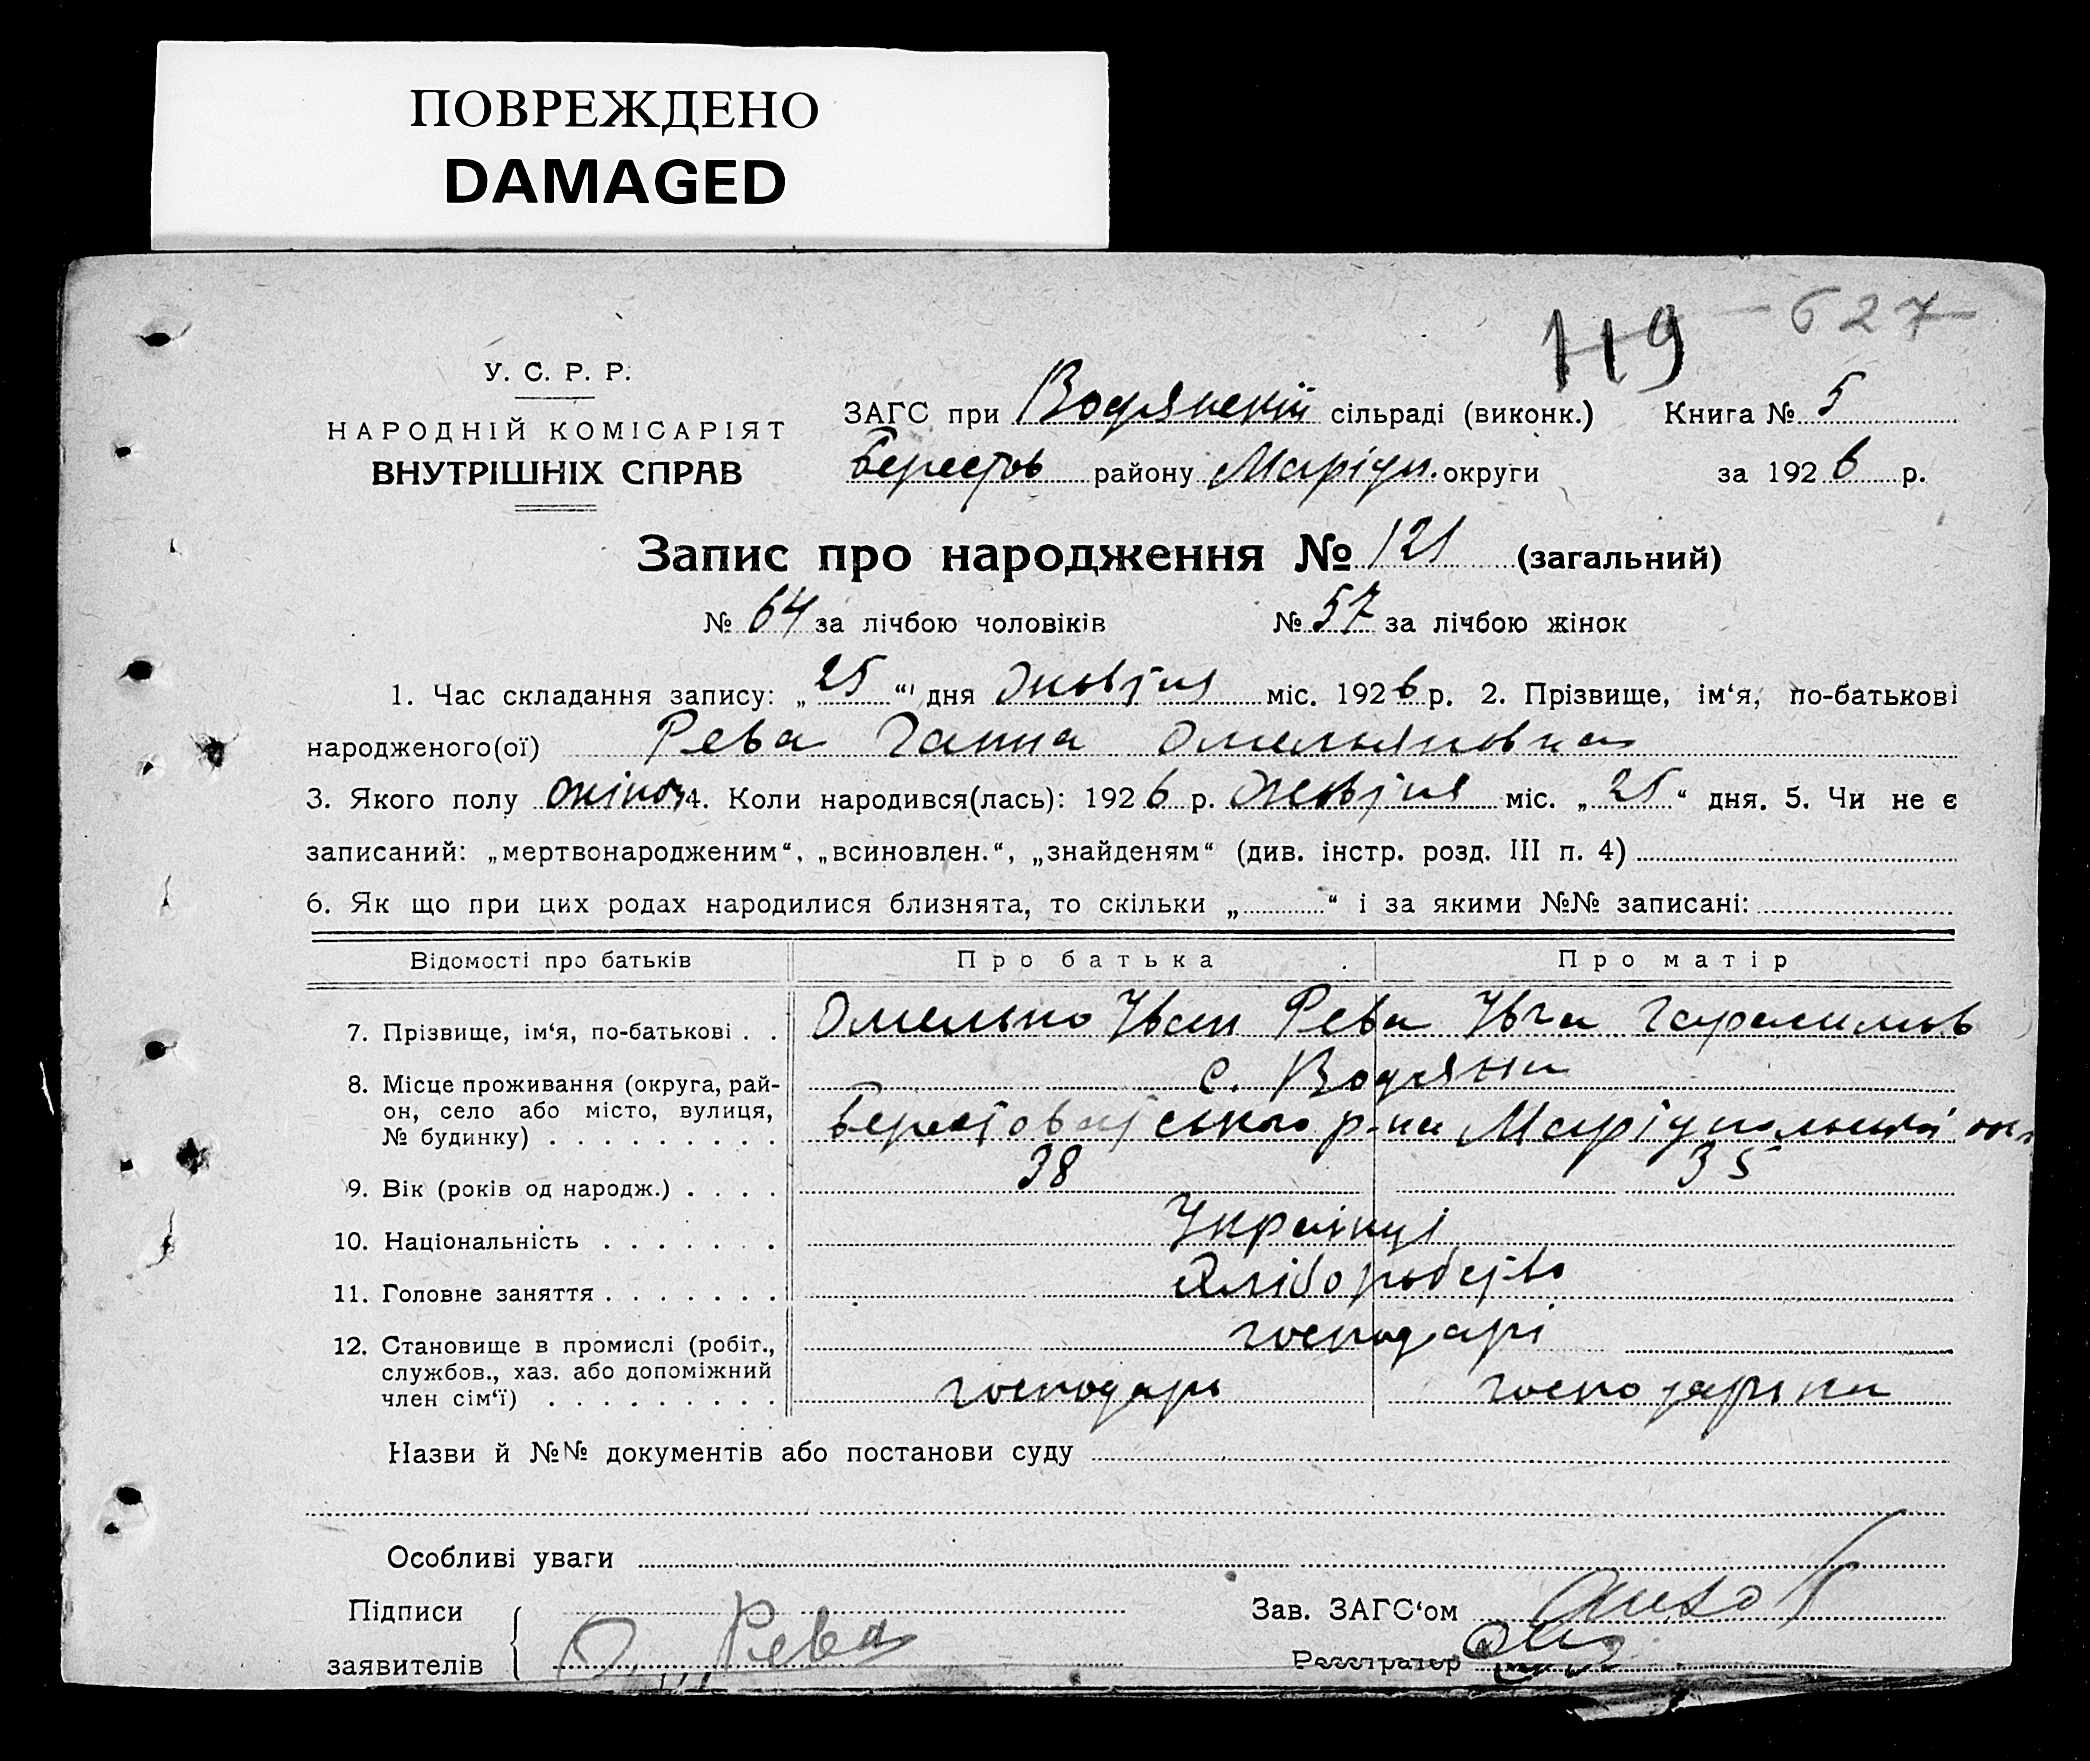 ПОВРЕЖДЕНО
DAMAGED
119 627
У. С. Р. Р.
НАРОДНІЙ КОМІСАРІЯТ
ВНУТРІШНІХ СПРАВ
ЗАГС при Водянскій сільраді (виконк.) Книга № 5
Берестов району Маріуп. округи за 1926 р.
Запис про народження № 121 (загальний)
№ 64 за лічбою чоловіків № 57 за лічбою жінок
1. Час складання запису: „25“ дня Жовтня міс. 1926 р. 2. Прізвище, ім‘я, по-батькові
народженого(ої) Рева Ганна Омельяновна
3. Якого полу жіноч 4. Коли народився(лась): 1926 р. Жовтня міс. „25“ дня. 5. Чи не є
записаний: „мертвонародженим“, „всиновлен.“, „знайденям“ (див. інстр. розд. III п. 4)
6. Як що при цих родах народилися близнята, то скільки „ “ і за якими №№ записані:
Відомості про батьків Про батька Про матір
7. Прізвище, ім‘я, по-батькові . . Омелько Іван Рева Івга Гарасимов
8. Місце проживання (округа, рай- с. Водяни
он, село або місто, вулиця,
№ будинку) . . . . . . . . . ського р-на Маріупольської
9. Вік (років од народж.) . . . . 38 35
10. Національність . . . . . . . Українці
11. Головне заняття . . . . . . . Хліборобство
12. Становище в промислі (робіт., господарі
службов., хаз. або допоміжний
член сім‘ї) . . . . . . . . . господарь господарка
Назви й №№ документів або постанови суду
Особливі уваги
Підписи Зав. ЗАГС‘ом
заявителів О. Рева Реєстратор